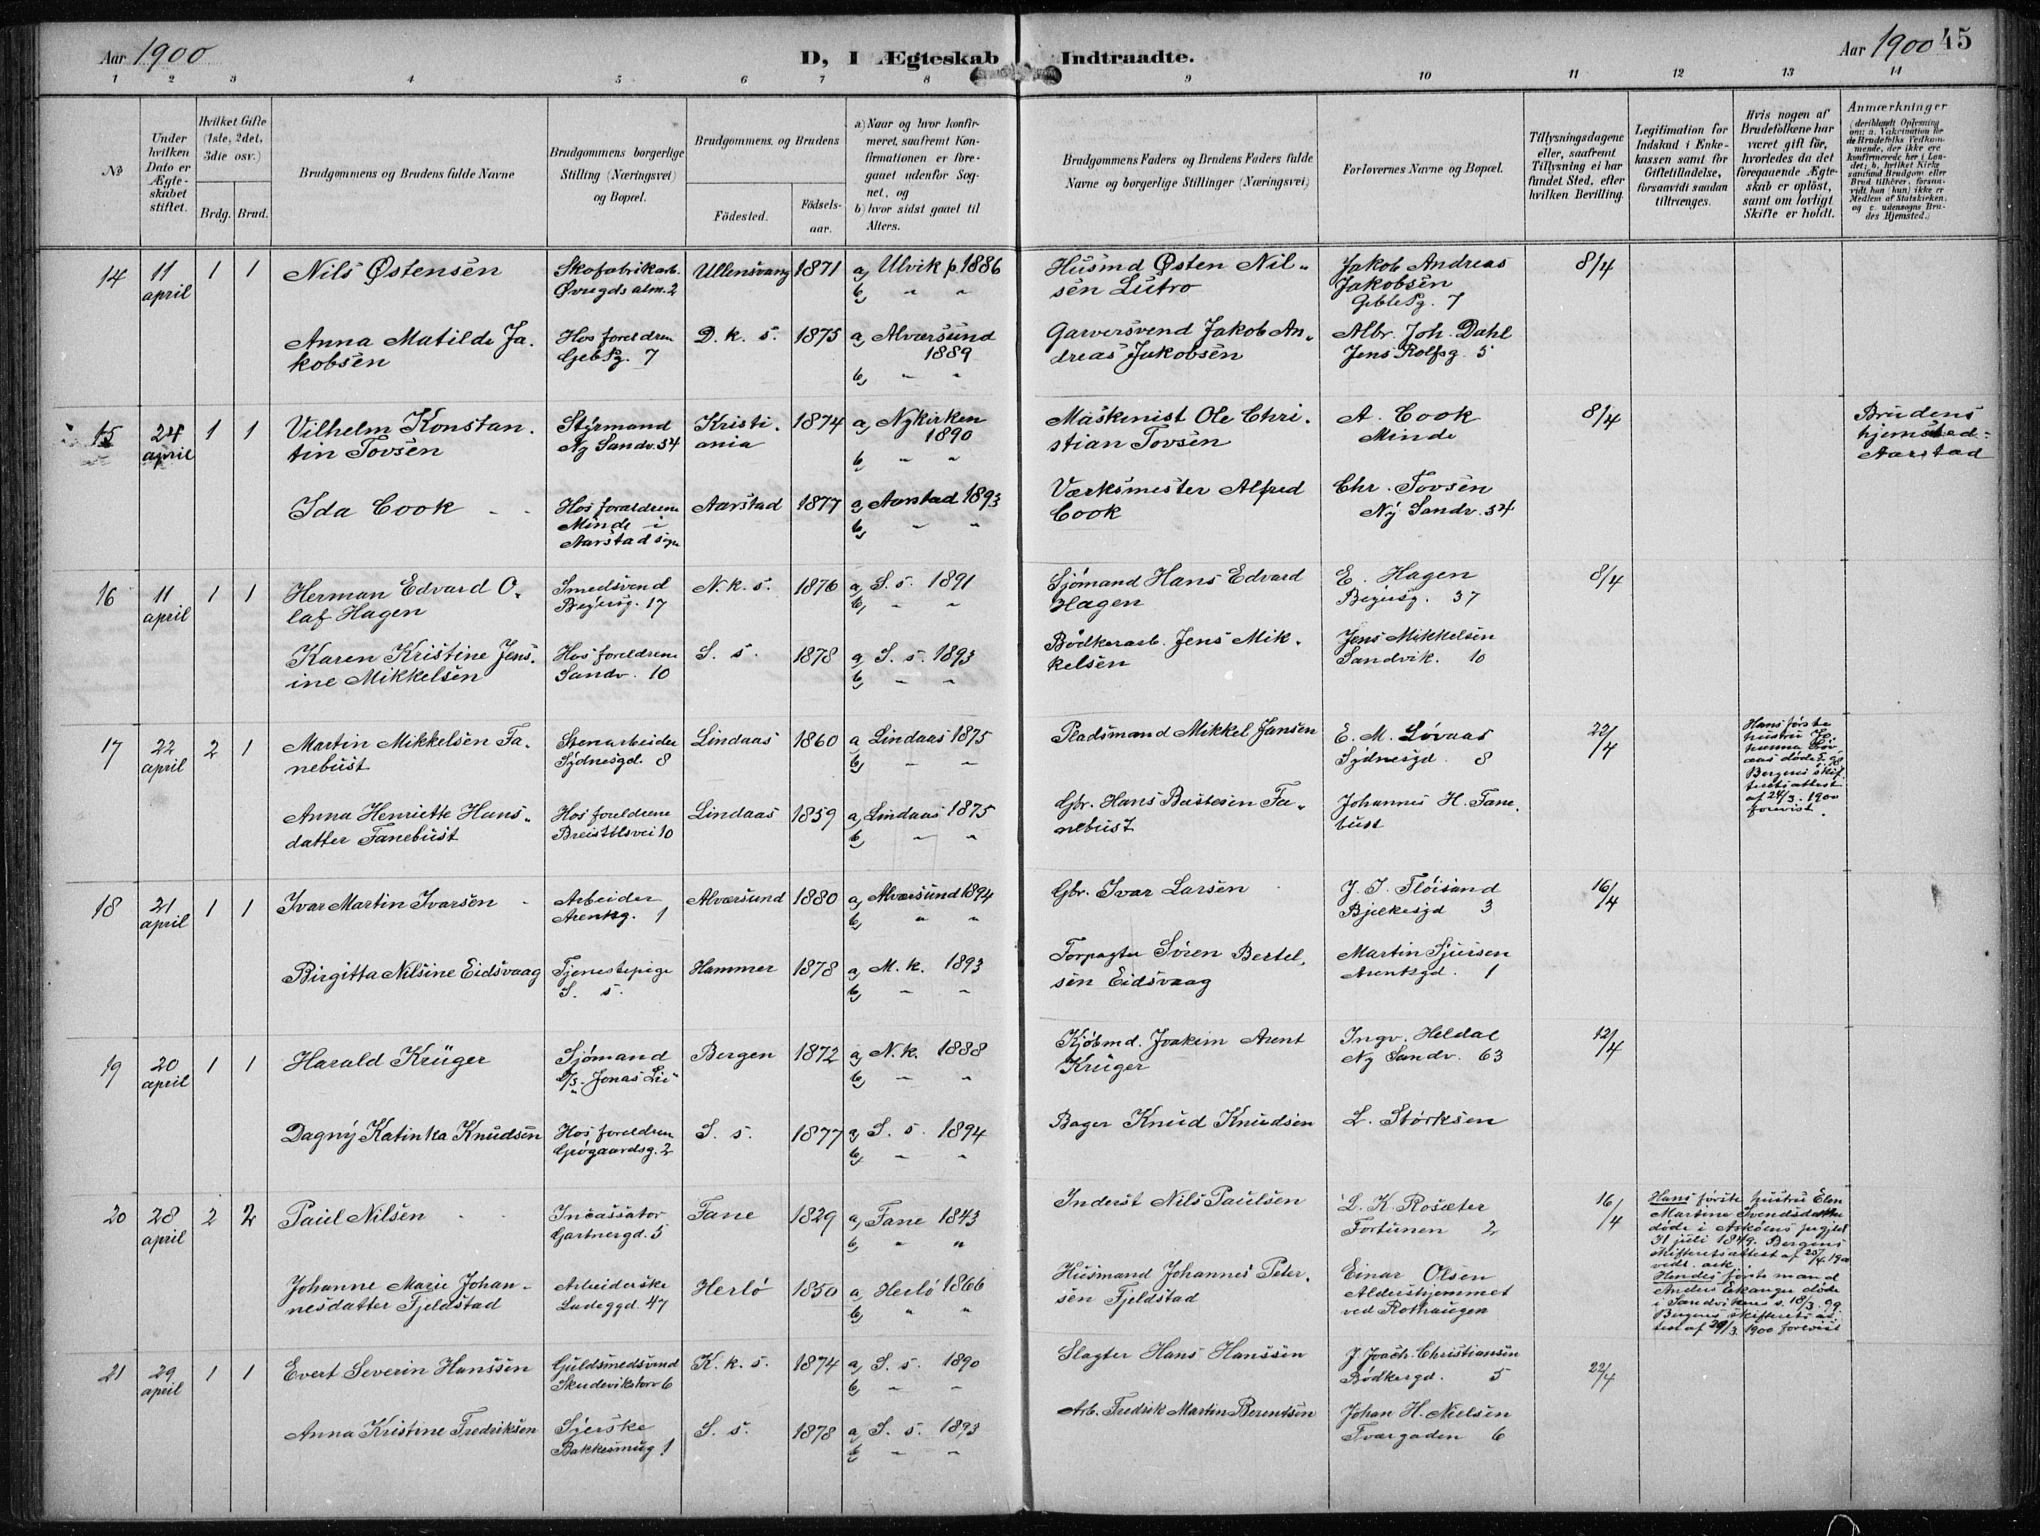 Aar 1900
D, I Ægteskab Indtraadte.
Aar 1900 45
1 2 3 4 5 6 7 8 9 10 11 12 13 14
No
Under hvilken Dato er Ægteskabet stiftet.
Hvilket Gifte (1ste, 2det, 3die osv.)
Brdg. Brud.
Brudgommens og Brudens fulde Navne
Brudgommens borgerlige Stilling (Næringsvei) og Bopæl.
Brudgommens og Brudens
Fødested. Fødselsaar.
a) Naar og hvor konfirmeret, saafremt Konfirmationen er foregaaet udenfor Sognet, og
b) hvor sidst gaaet til Alters.
Brudgommens Faders og Brudens Faders fulde Navne og borgerlige Stillinger (Næringsvei)
Forlovernes Navne og Bopæl.
Tillysningsdagene eller, saafremt Tillysning ei har fundet Sted, efter hvilken Bevilling.
Legitimation for Indskud i Enkekassen samt for Giftetilladelse, forsaavidt saadan tiltrænges.
Hvis nogen af Brudefolkene har været gift før, hvorledes da det foregaaende Ægteskab er opløst, samt om lovligt Skifte er holdt.
Anmærkninger
14 11 april 1 1 Nils Østensen Skofabrikarb. Ullensvang 1871 a) Ulvik p. 1886 Husmd Østen Nil- Jakob Andreas 8/4
Øvregds alm. 2 b) " " sen Lutro Jakobsen
Geble Pg. 7
Anna Matilde Ja- Hos foreldren D. k. s. 1875 a) Alværsund Garversvend Jakob An- Albr. Joh. Dahl
kobsen 7 1889 dreas Jakobsen Jens Rolfsg. 5
b) " "
15 24 april 1 1 Vilhelm Konstan- Styrmand Kristi- 1874 a) Nykirken Maskenist Ole Chri- A. Cook 8/4 Brudens
tin Tovsen Ny Sandv. 54 ania 1890 stian Tovsen Minde hjemsted =
b) " " Aarstad
Ida Cook Hos foreldrene Aarstad 1877 a) Aarstad 1893 Værksmester Alfred Chr. Tovsen
Minde i b) " " Cook Ny Sandv. 54
Aarstad sogn
16 11 april 1 1 Herman Edvard O- Smedsvend N. k. s. 1876 a) S. s. 1891 Sjømand Hans Edvard E. Hagen 8/4
laf Hagen 17 b) " " Hagen 37
Karen Kristine Jens- Hos foreldrene S. s. 1878 a) S. s. 1893 Bødkerarb. Jens Mik- Jens Mikkelsen
ine Mikkelsen Sandv. 10 b) " " kelsen Sandvik. 10
17 22 april 2 1 Martin Mikkelsen Fa- Stenarbeider Lindaas 1860 a) Lindaas 1875 Pladsmand Mikkel Jansen E. M. Løvaas 22/4
nebust Sydnesgd. 8 b) " " Sydnesgd 8
Hans første
hustru Jo-
hanna Løv-
aas døde
Bergens skif-
teretsattest
af 24/3. 1900
forevist.
Anna Henriette Hans- Hos foreldrene Lindaas 1859 a) Lindaas 1875 Gbr. Hans Bastesen Fa- Johannes H. Fane-
datter Fanebust Breistølsvei 10 b) " " nebust bust
18 21 april 1 1 Ivar Martin Ivarsen Arbeider Alværsund 1880 a) Alværsund 1894 Gbr. Ivar Larsen J. I. Fløisand 16/4
Arentsg. 1 b) " " Bjelkesgd 3
Birgitta Nilsine Eidsvaag Tjenestepige Hammer 1878 a) M. k. 1893 Forpagter Søren Bertel- Martin Sjursen
S. s. b) " " sen Eidsvaag Arentsgd. 1
19 20 april 1 1 Harald Krüger Sjømand Bergen 1872 a) N. k. 1888 Kjøbmd. Joakim Arent Ingv. Heldal 12/4
D/S. Jonas Lie b) " " Krüger Ny Sandv. 63
Dagny Katinka Knudsen Hos foreldrene S. s. 1877 a) S. s. 1894 Bager Knud Knudsen L. Størksen
Grøgaardsg. 2 b) " "
20 28 april 2 2 Paul Nilsen Incassator Fane 1829 a) Fane 1843 Inderst Nils Paulsen L. K. Rosæter 16/4
Gartnergd. 5 b) " " Fortunen 2
Hans første hustru Elen
Martine Svendsdatter
døde i Askøens prgjeld
31 juli 1849. Bergens
skifteretsattest af 25/4. 190
vedl. ark
Johanne Marie Johan- Arbeiderske Herlø 1850 a) Herlø 1866 Husmand Johannes Peter- Einar Olsen
nesdatter Fjeldstad Ladeggd. 47 b) " " sen Fjeldstad Aldershjemmet
ved Rothaugen
Hendes første mand
Anders Ekanger døde
i Sandvikens s. 18/3. 99.
Bergens skifterets at-
test af 29/3. 1900 forevist
21 29 april 1 1 Evert Severin Hanssen Guldsmedsvend K. k. s. 1874 a) S. s. 1890 Slagter Hans Hanssen J. Joach. Christiansen 22/4
Skudevikstorv 6 b) " " Bødkergd. 5
Anna Kristine Fredriksen Syerske S. s. 1878 a) S. s. 1893 Arb. Fredrik Martin Berentsen Johan H. Nielsen
Bakkesmug 1 b) " " Tvergaden 6